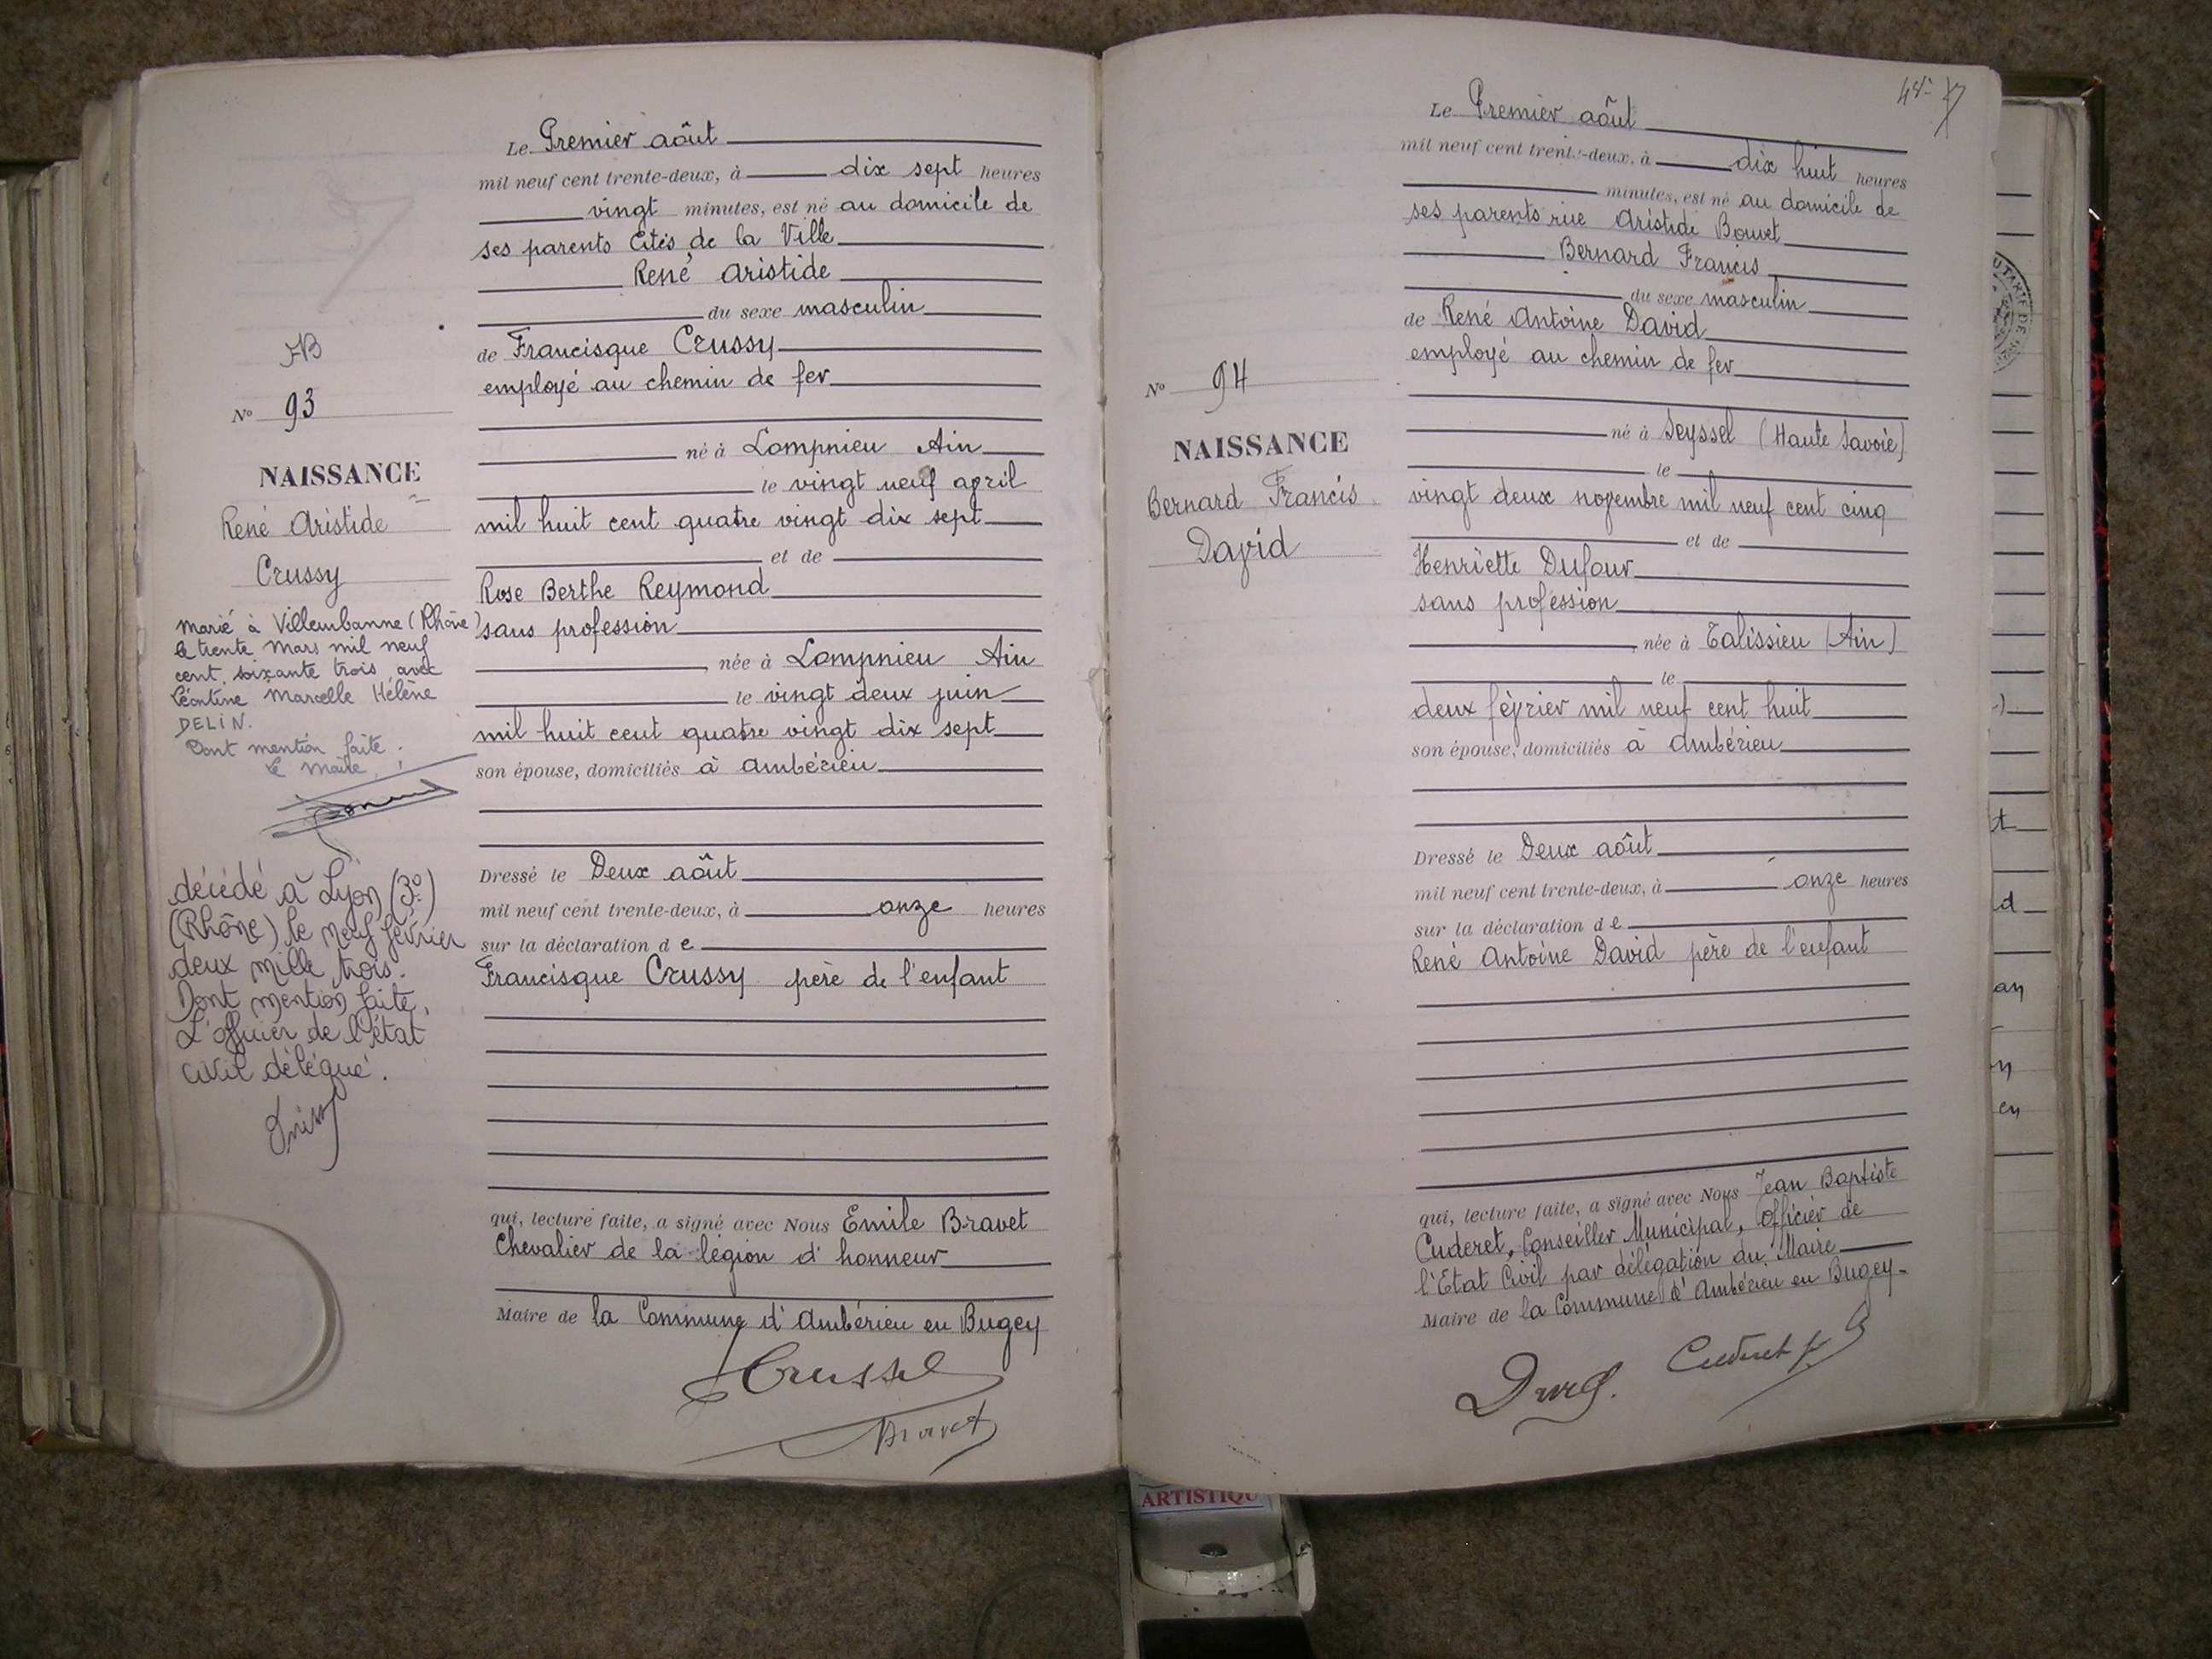 JB
N° 93
NAISSANCE
René Aristide
Crussy
marié à Villeurbanne (Rhône)
le trente mars mil neuf
cent soixante trois avec
Léontine Marcelle Hélène
DELIN.
Dont mention faite.
Le Maire
décédé à Lyon (3°)
(Rhône) le neuf février
deux mille trois.
Dont mention faite,
L'officier de l'état
civil délégué.
Le Premier aôut
mil neuf cent trente-deux, à dix sept heures
vingt minutes, est né au domicile de
ses parents Cités de la Ville
René Aristide
du sexe masculin
de Francisque Crussy
employé au chemin de fer
né à Lompnieu Ain
le vingt neuf avril
mil huit cent quatre vingt dix sept
et de
Rose Berthe Reymond
sans profession
née à Lompnieu Ain
le vingt deux juin
mil huit cent quatre vingt dix sept
son épouse, domiciliés à Ambérieu
Dressé le Deux aôut
mil neuf cent trente-deux, à onze heures
sur la déclaration de
Francisque Crussy père de l'enfant
qui, lecture faite, a signé avec Nous Emile Bravet
Chevalier de la légion d'honneur
Maire de la Commune d'Ambérieu en Bugey
Bravet
48
N° 94
NAISSANCE
Bernard Francis
David
Le Premier aôut
mil neuf cent trente-deux, à dix huit heures
minutes, est né au domicile de
ses parents rue Aristide Bouvet
Bernard Francis
du sexe masculin
de René Antoine David
employé au chemin de fer
né à Seyssel (Haute Savoie)
le
vingt deux novembre mil neuf cent cinq
et de
Henriette Dufour
sans profession
née à Talissieu (Ain)
le
deux février mil neuf cent huit
son épouse, domiciliés à Ambérieu
Dressé le Deux aôut
mil neuf cent trente-deux, à onze heures
sur la déclaration de
René Antoine David père de l'enfant
qui, lecture faite, a signé avec Nous Jean Baptiste
Cuderet, Conseiller Municipal, Officier de
l'Etat Civil par délégation du Maire
Maire de la Commune d'Ambérieu en Bugey
Cuderet
ARTISTIQU